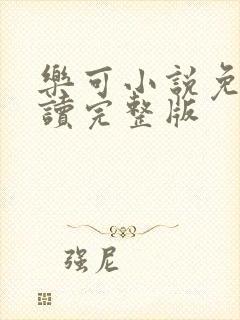 樂可小說免
讀完整版
强尼